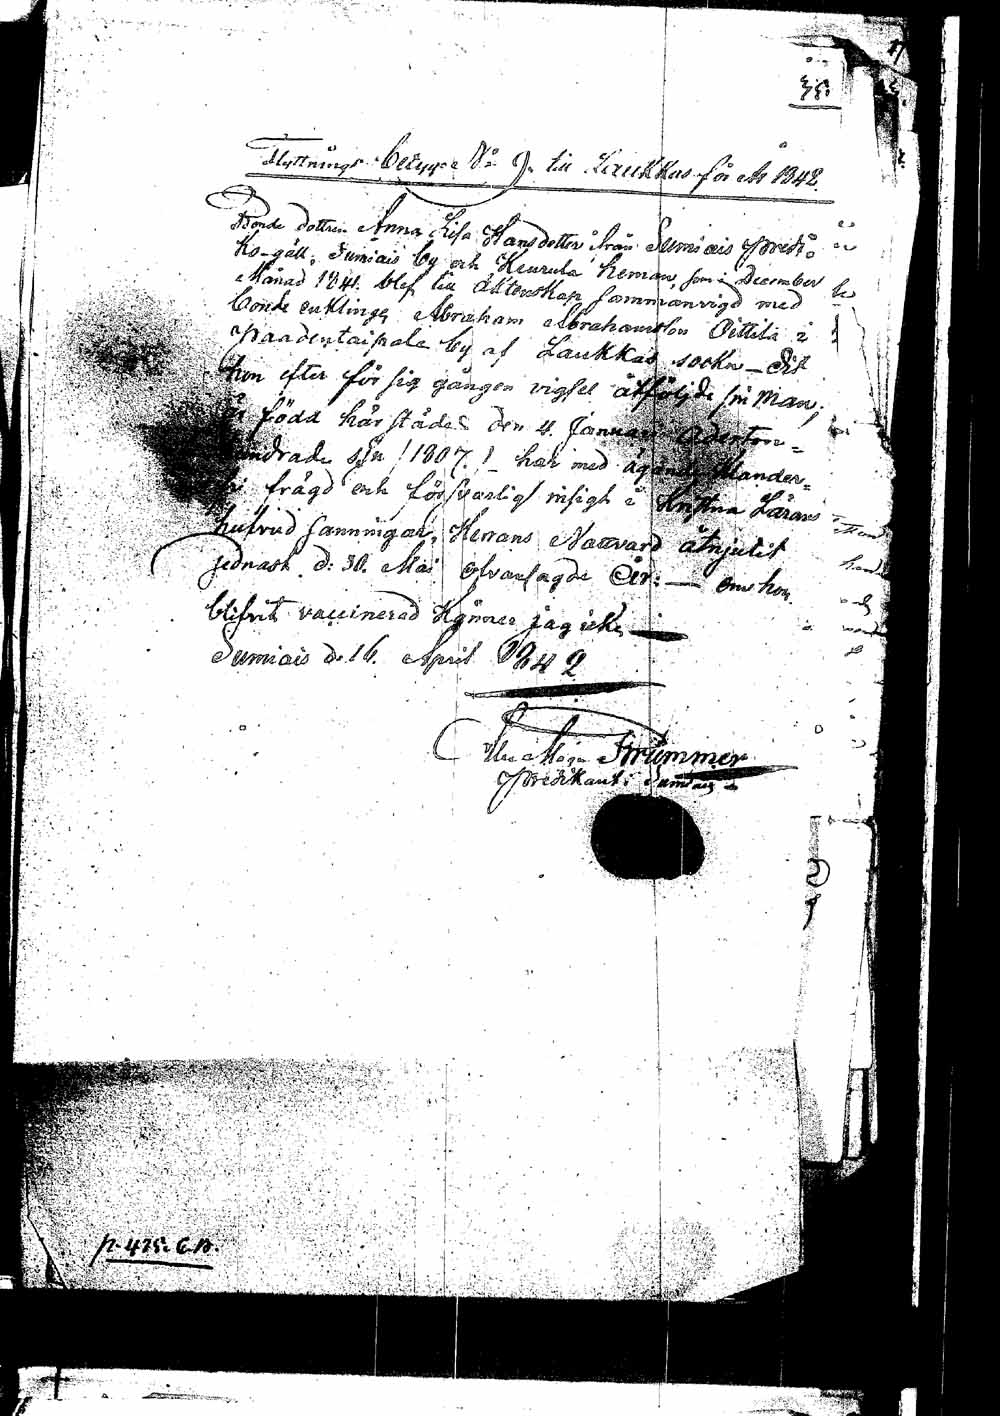 35.
Flyttnings-betyg N:o 9. till Laukkas för År 1842.
Bonde dottren Anna Lisa Hansdotter från Sumiais Predi-
ko-gäll, Sumiais by och Keurula heman, som i December
Månad 1841. blef till äktenskap sammanvigd med
bonde enklingen Abraham Abrahamsson Pittilä i
Paadentaipale by af Laukkas sockn — dit
hon efter för sig gången vigsel åtföljde sin Man,
är född härstädes den 4. Januari Aderton-
hundrade sju (1807.) — har med ägande klander-
fri frägd och försvarlig insigt i kristna Lärans
hufvud sanningar, Herrans Nattvard åtnjutit
sednast d. 30. Mai ofvansagde År: — om hon
blifvit vaccinerad känner jag icke —
Sumiais d. 16. April 1842
Strömmer
Predikant i Sumiais
p. 425. C.B.